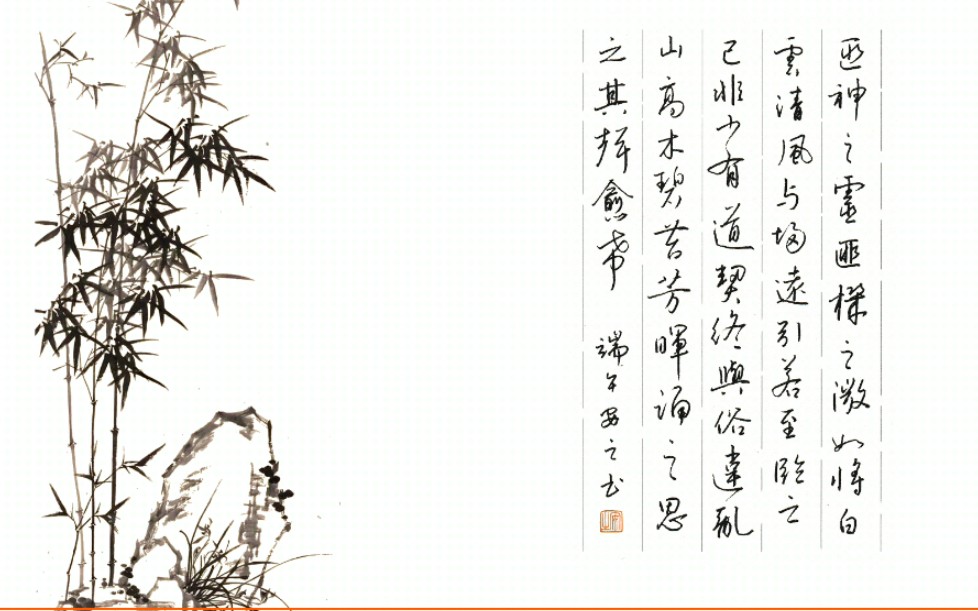 匪神之靈匪機之微如將白
雲清風与歸遠引若至臨之
已非少有道契終與俗違亂
山高木碧苔芳暉誦之思
之其聲愈希 端午安之书